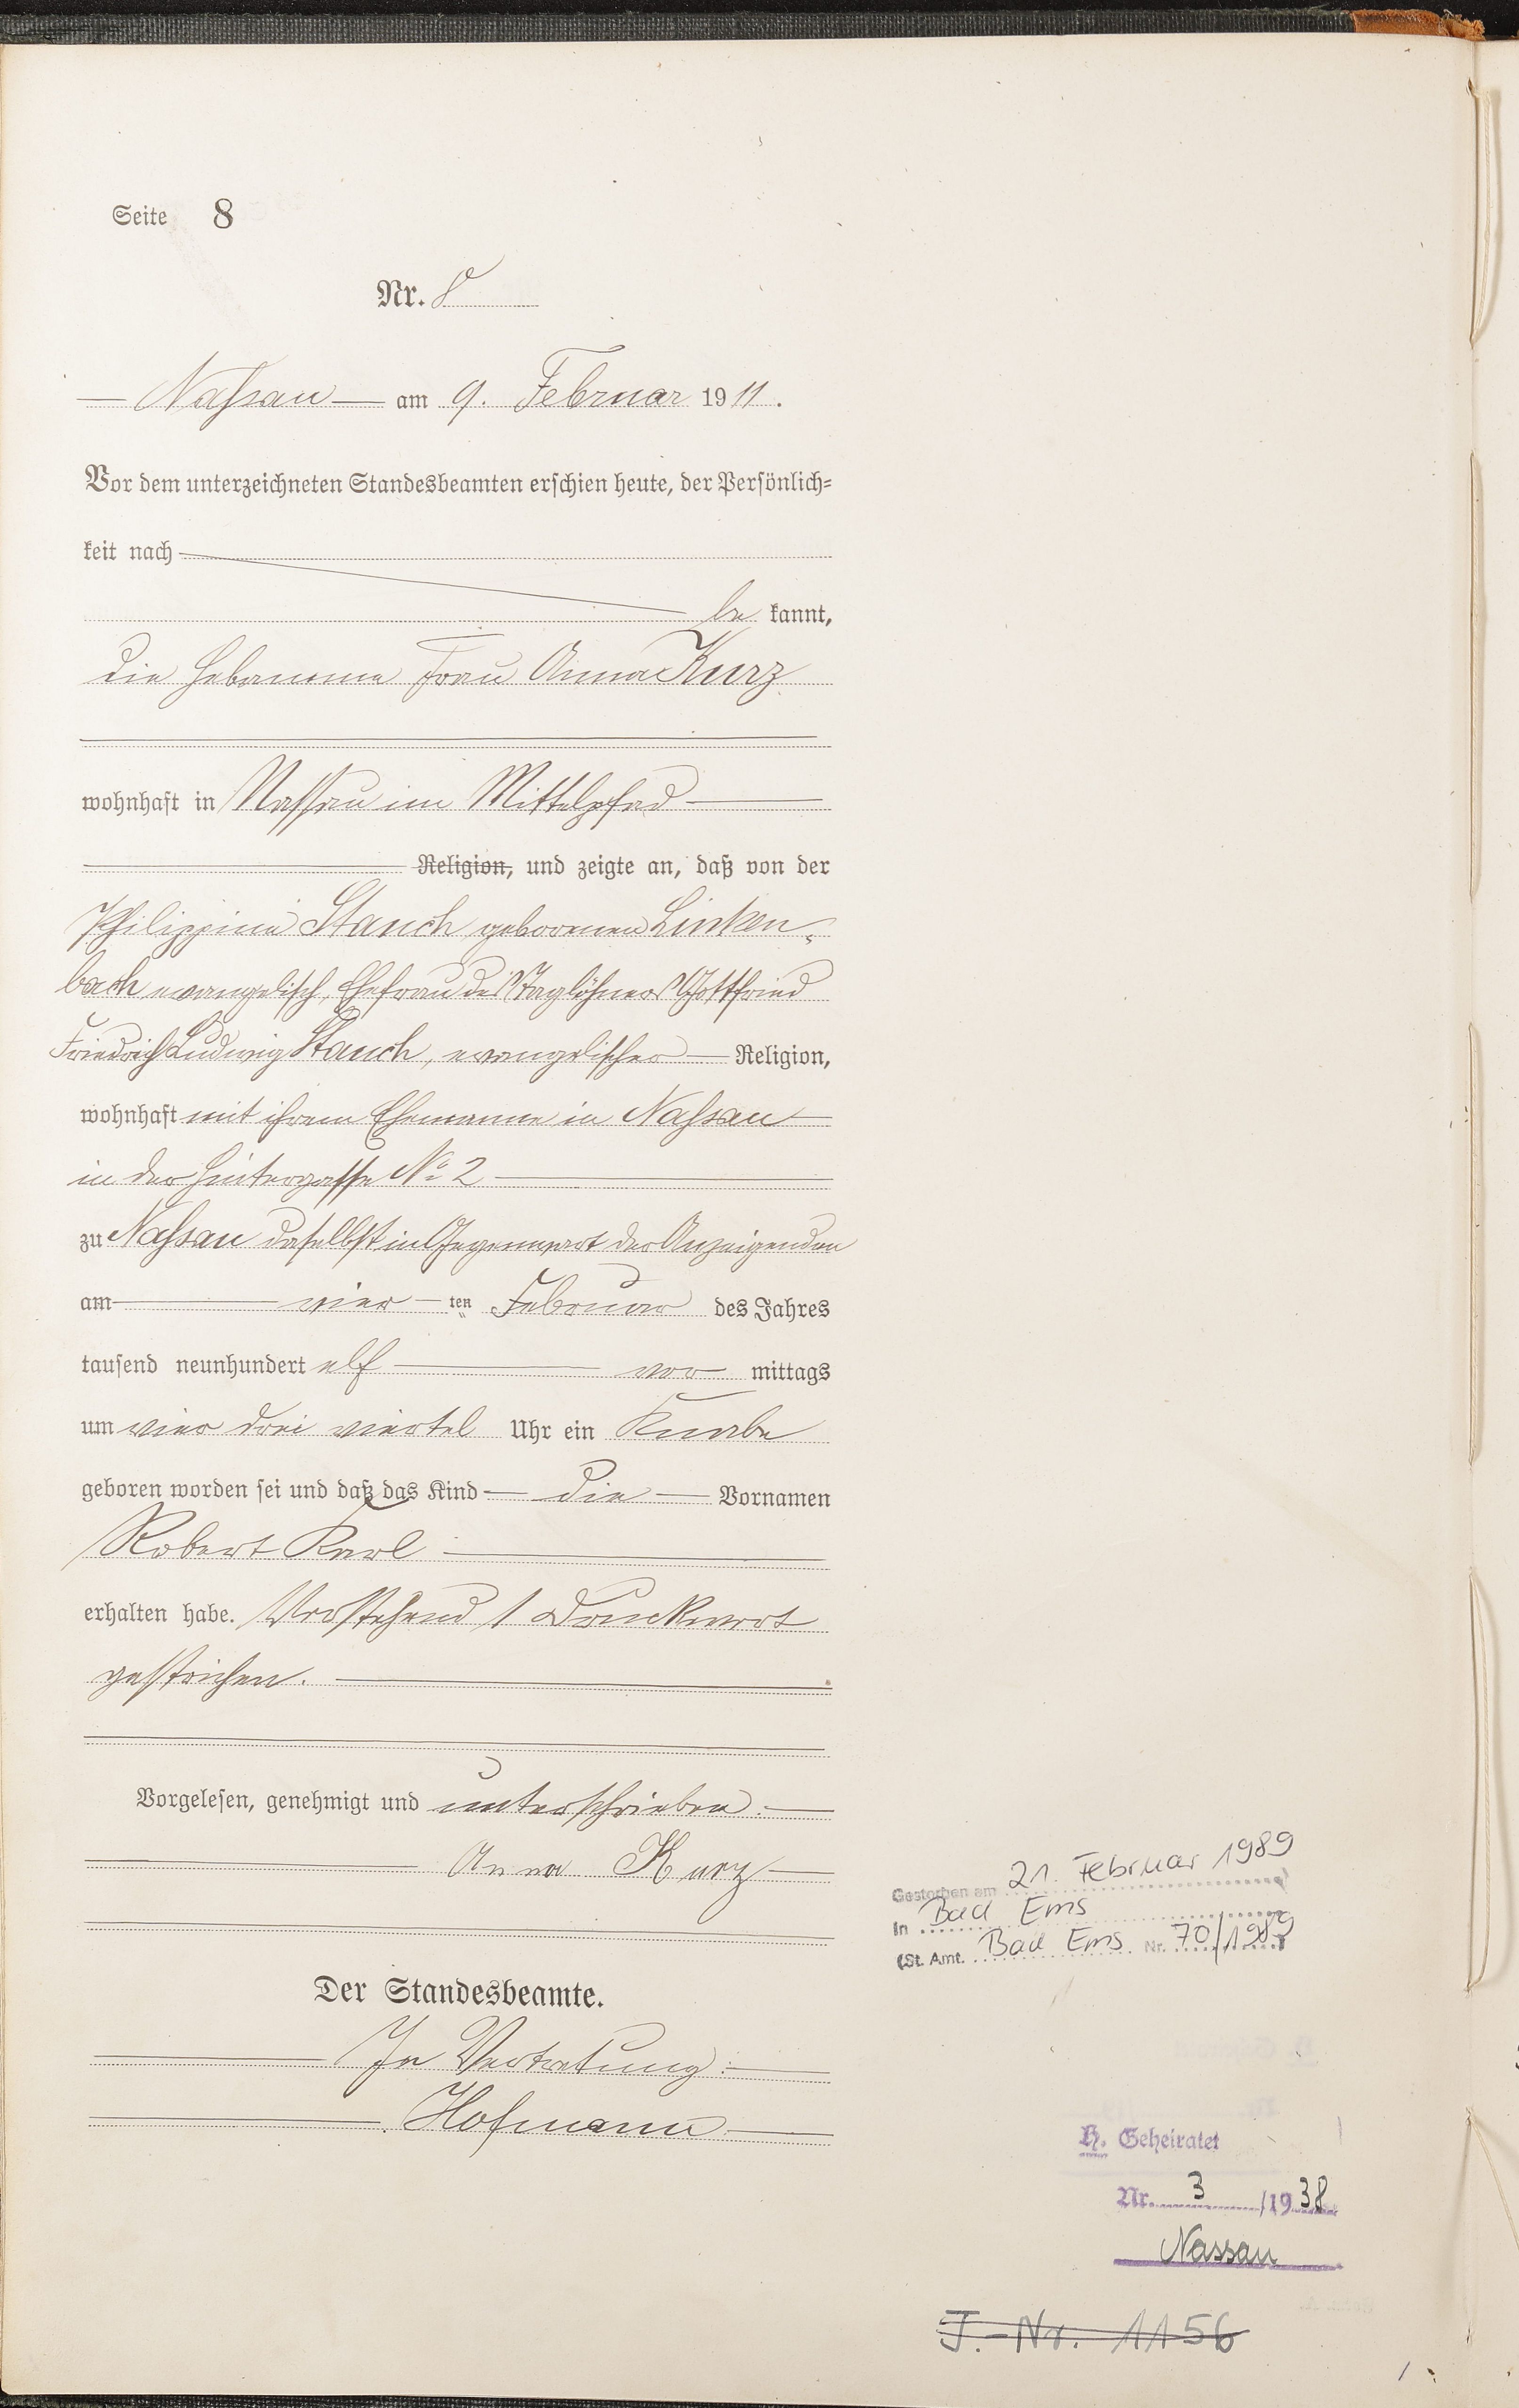 Seite 8
Nr. 8
Nassau am 9. Februar 1911.
Vor dem unterzeichneten Standesbeamten erschien heute, der Persönlich-
keit nach
be kannt,
die Hebamme Frau Anna Kurz
wohnhaft in Nassau im Mittelpfad
Religion, und zeigte an, daß von der
Philippine Stauch geborenen Linken-
bach evangelisch, Ehefrau des Taglöhners Gottfried
Friedrich Ludwig Stauch, evangelischer Religion,
wohnhaft mit ihrem Ehemanne in Nassau
in der Hintergasse No 2
zu Nassau daselbst in Gegenwart der Anzeigenden
am vier ten Februar des Jahres
tausend neunhundert elf vor mittags
um vier drei viertel Uhr ein Knabe
geboren worden sei und daß das Kind die Vornamen
Robert Karl
erhalten habe. Vorstehend 1 Druckwort
gestrichen.
Vorgelesen, genehmigt und unterschrieben.
Anna Kurz
Der Standesbeamte.
In Vertretung:
Hofmann
Gestorben am 21. Februar 1989
in Bad Ems
(St. Amt. Bad Ems Nr. 70/1989)
H. Geheiratet
Nr. 3 /1938
Nassau
J.-Nr. 1156